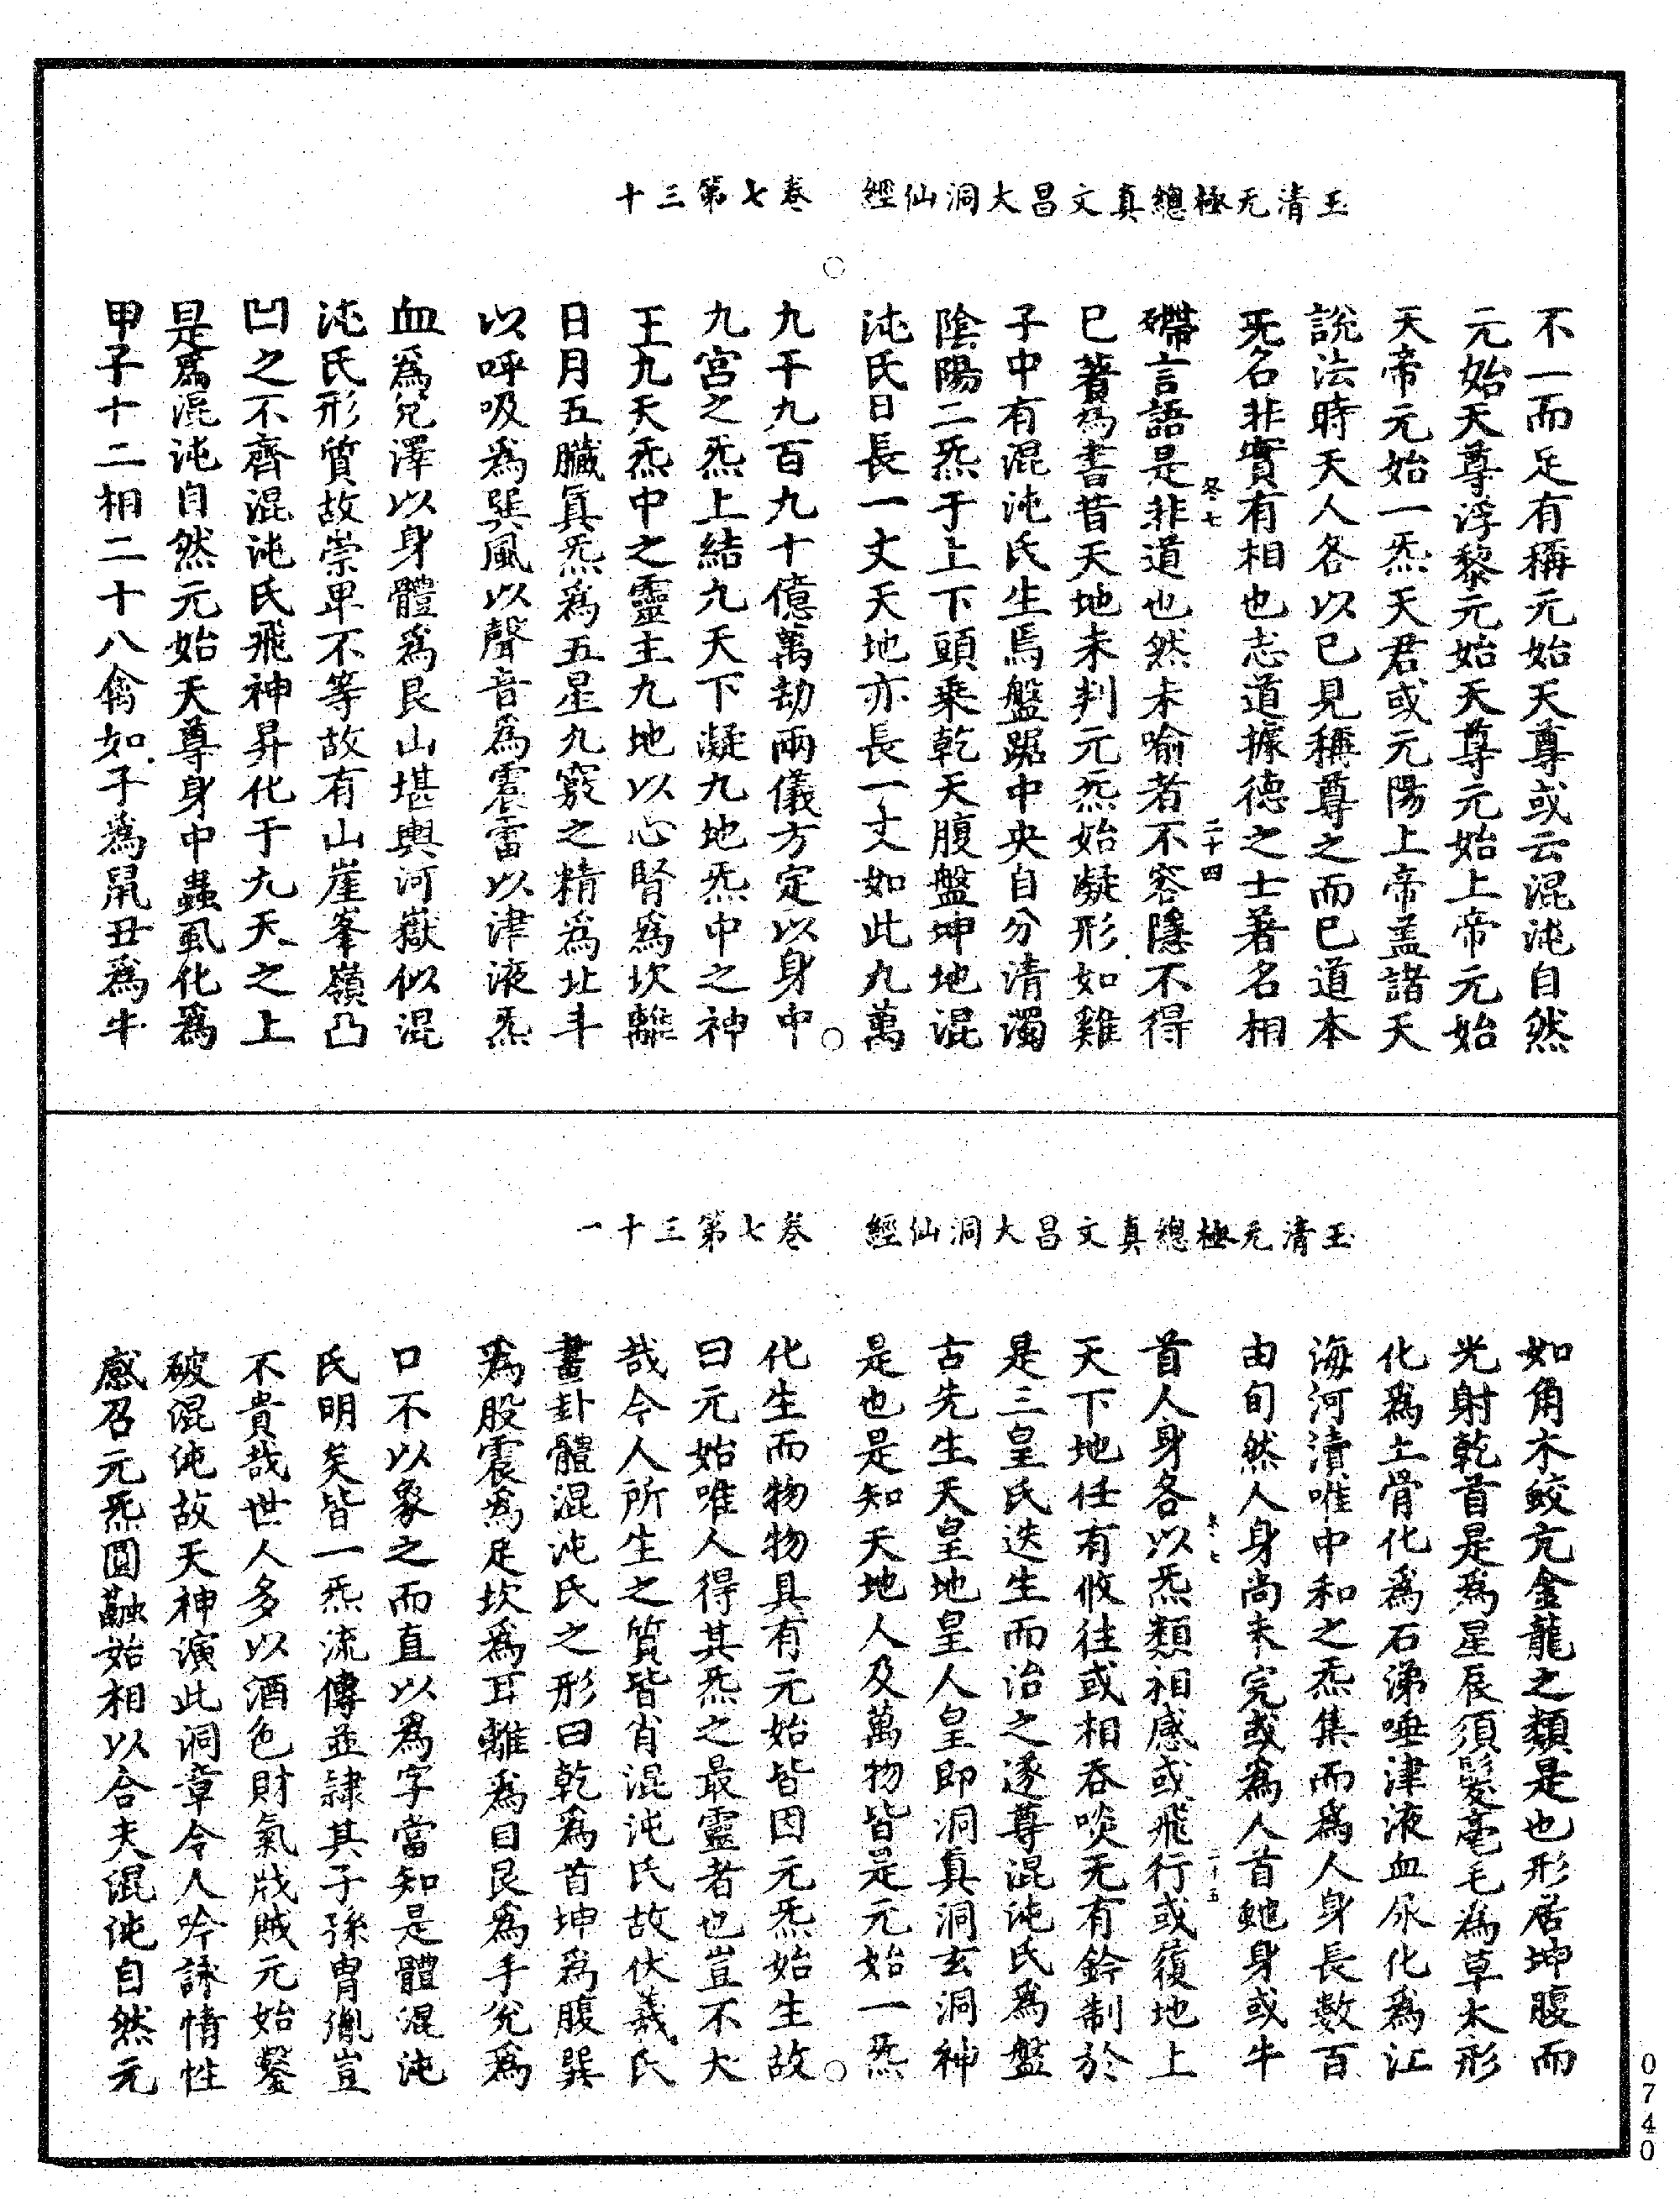 玉清无極總真文昌大洞仙經 卷七第三十
不一而足有稱元始天尊或云混沌自然
元始天尊浮黎元始天尊元始上帝元始
天帝元始一炁天君或元陽上帝盖諸天
說法時天人各以已見稱尊之而已道本
无名非實有相也志道據德之士著名相
冬七
二十四
言語是非道也然未喻者不容隱不得
已著為書昔天地未判元炁始凝形如雞
子中有混沌氏生焉盤踞中央自分清濁
陰陽二炁于上下頭乘乾天腹盤坤地混
沌氏日長一丈天地亦長一丈如此九萬
九千九百九十億萬劫兩儀方定以身中
九宮之炁上結九天下凝九地炁中之神
王九天炁中之靈主九地以心腎為坎離
日月五臟真炁為五星九竅之精為北斗
以呼吸為巽風以聲音為震雷以津液炁
血為兌澤以身體為艮山堪輿河嶽似混
沌氏形質故崇卑不等故有山崖峯嶺凸
凹之不齊混沌氏飛神昇化于九天之上
是為混沌自然元始天尊身中蟲虱化為
甲子十二相二十八禽如子為鼠丑為牛
玉清无極總真文昌大洞仙經 卷七第三十一
如角木蛟亢金龍之類是也形居坤腹而
光射乾首是為星辰須髮毫毛為草木形
化為土骨化為石涕唾津液血尿化為江
海河瀆唯中和之炁集而為人身長數百
由旬然人身尚未完或為人首虵身或牛
冬七
二十五
首人身各以炁類相感或飛行或覆地上
天下地任有攸往或相吞啖无有鈐制於
是三皇氏迭生而治之遂尊混沌氏為盤
古先生天皇地皇人皇即洞真洞玄洞神
是也是知天地人及萬物皆是元始一炁
化生而物物具有元始皆因元炁始生故
曰元始唯人得其炁之最靈者也豈不大
哉今人所生之質皆肖混沌氏故伏羲氏
畫卦體混沌氏之形曰乾為首坤為腹巽
為股震為足坎為耳離為目艮為手兌為
口不以象之而直以為字當知是體混沌
氏明矣皆一炁流傳並隸其子孫胄胤豈
不貴哉世人多以酒色財氣戕賊元始鑿
破混沌故天神演此洞章令人吟詠情性
感召元炁圓融始相以合夫混沌自然元
0740